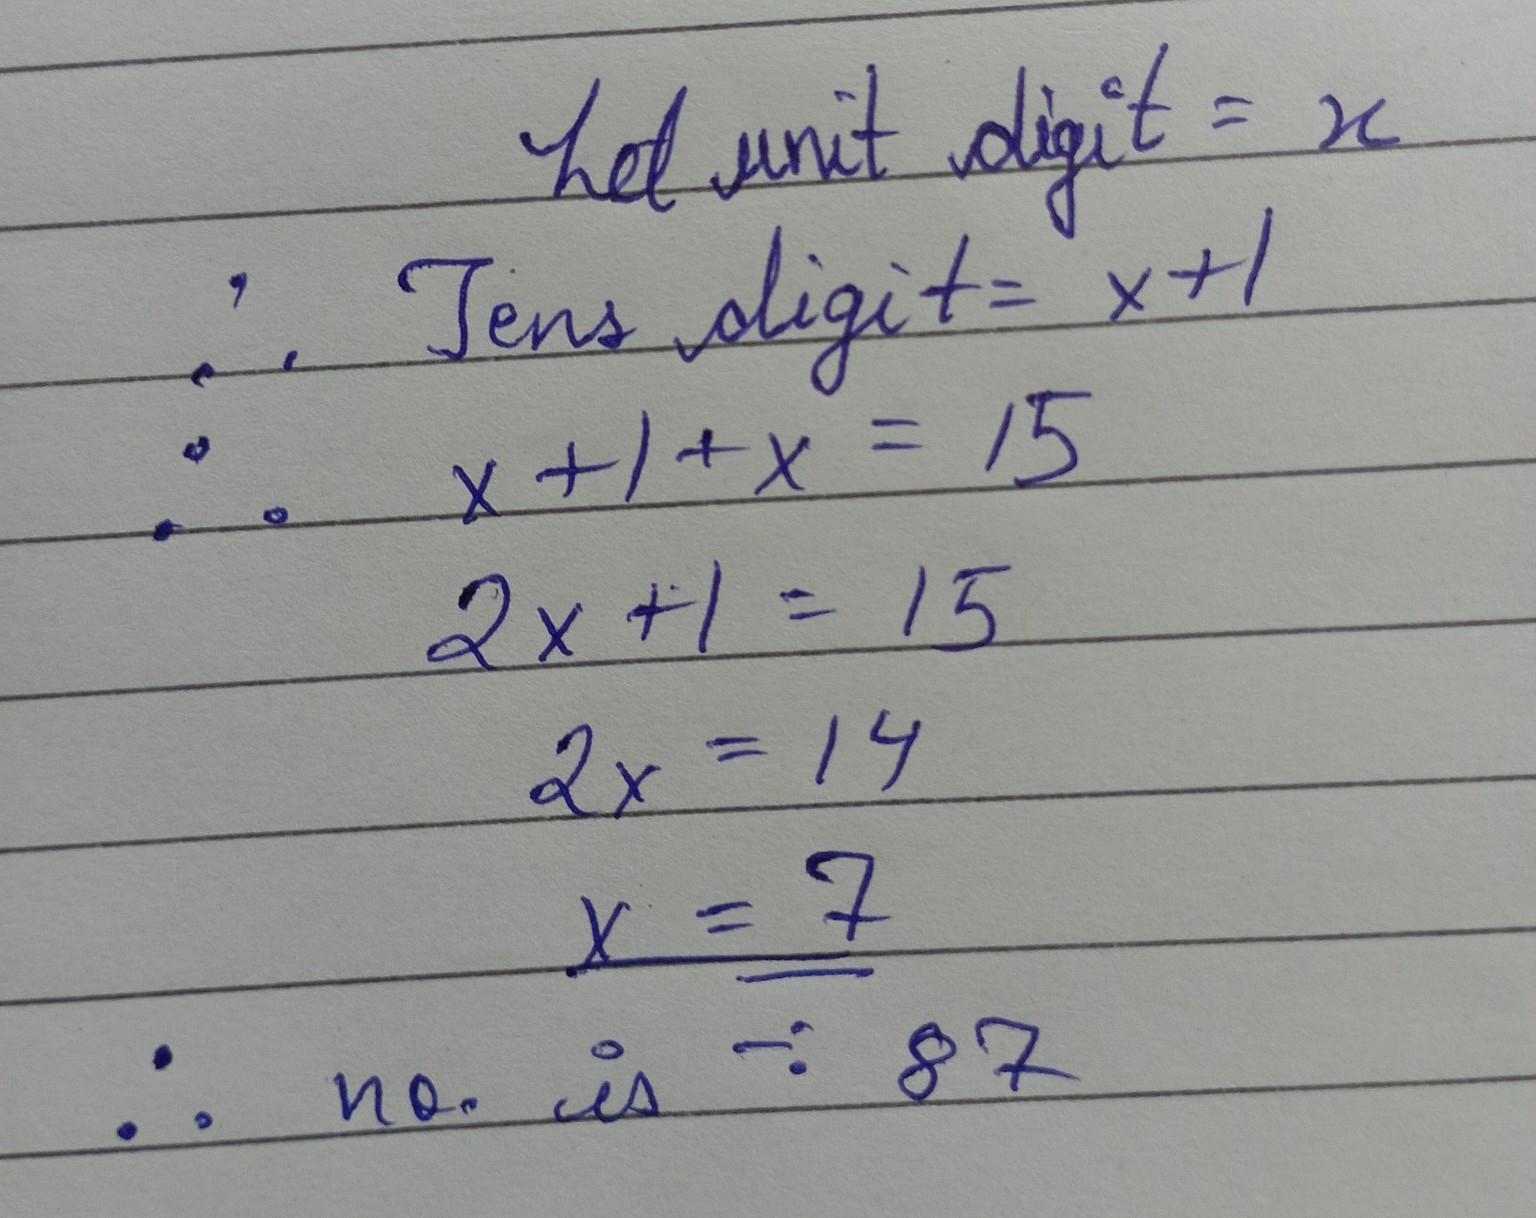 Let unit digit = x
∴ Tens digit = x+1
∴ x+1+x = 15
2x+1 = 15
2x = 14
x = 7
∴ no. is -: 87